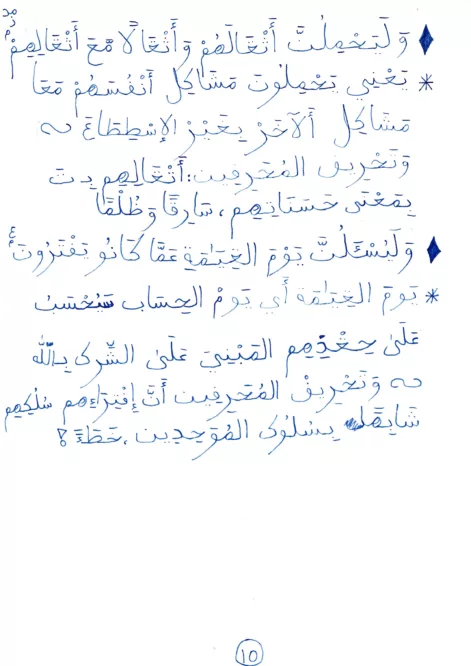 ♦ وَلَيَحْمِلُنَّ أَثْقَالَهُمْ وَأَثْقَالًا مَّعَ أَثْقَالِهِمْ
* يَعْنِي يَحْمِلُونَ مَشَاكِل أَنْفُسَهُمْ مَعَا
مَشَاكِل أَلآخَرْ بِغَيْرْ الإِسْطِطَاعَ
وَتَحْرِيف المُحَرِفِين: أَثْقَالِهِم
بِمَعْنَى حَسَنَاتِهِم، سَارِقًا وَظُلْمًا
♦ وَلَيُسْـَٔلُنَّ يَوْمَ القِيَـٰمَةِ عَمَّا كَانُو يَفْتَرُونَ
* يَومَ القِيَـٰمَة أَي يَومْ الحِسَاب سَيُحْسَبُ
عَلَىٰ حِقْدِهِم المَبْنِيَ عَلَىٰ الشِّركِ بِـاللّٰه
وَتَحْرِيفْ المُحَرِفِين أَنَّ إِفْتِرَاءِهِم سُلُكِهِم
بِسُلُوكِ المُوَحِدِين، خَطَأْ؟
10